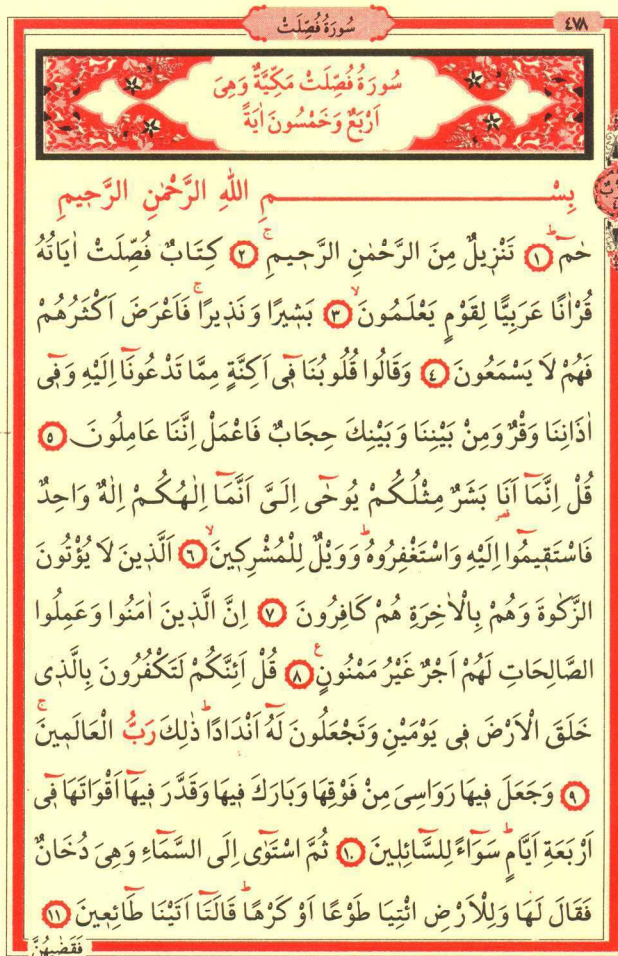 سُورَةُ فُصِّلَتْ
٤٧٨
سُورَةُ فُصِّلَتْ مَكِّيَّةٌ وَهِيَ
اَرْبَعٌ وَخَمْسُونَ اٰيَةً
بِسْمِ اللهِ الرَّحْمٰنِ الرَّحٖيمِ
حٰمٓ ١ تَنْزٖيلٌ مِنَ الرَّحْمٰنِ الرَّحٖيمِ ٢ كِتَابٌ فُصِّلَتْ اٰيَاتُهُ
قُرْاٰنًا عَرَبِيًّا لِقَوْمٍ يَعْلَمُونَ ٣ بَشٖيرًا وَنَذٖيرًا فَاَعْرَضَ اَكْثَرُهُمْ
فَهُمْ لَا يَسْمَعُونَ ٤ وَقَالُوا قُلُوبُنَا فٖٓى اَكِنَّةٍ مِمَّا تَدْعُونَٓا اِلَيْهِ وَفٖٓى
اٰذَانِنَا وَقْرٌ وَمِنْ بَيْنِنَا وَبَيْنِكَ حِجَابٌ فَاعْمَلْ اِنَّنَا عَامِلُونَ ٥
قُلْ اِنَّمَٓا اَنَا۬ بَشَرٌ مِثْلُكُمْ يُوحٰٓى اِلَىَّ اَنَّمَٓا اِلٰهُكُمْ اِلٰهٌ وَاحِدٌ
فَاسْتَقٖيمُٓوا اِلَيْهِ وَاسْتَغْفِرُوهُ وَوَيْلٌ لِلْمُشْرِكٖينَ ٦ اَلَّذٖينَ لَا يُؤْتُونَ
الزَّكٰوةَ وَهُمْ بِالْاٰخِرَةِ هُمْ كَافِرُونَ ٧ اِنَّ الَّذٖينَ اٰمَنُوا وَعَمِلُوا
الصَّالِحَاتِ لَهُمْ اَجْرٌ غَيْرُ مَمْنُونٍ ٨ قُلْ اَئِنَّكُمْ لَتَكْفُرُونَ بِالَّذٖى
خَلَقَ الْاَرْضَ فٖى يَوْمَيْنِ وَتَجْعَلُونَ لَهُٓ اَنْدَادًا ذٰلِكَ رَبُّ الْعَالَمٖينَ
٩ وَجَعَلَ فٖيهَا رَوَاسِىَ مِنْ فَوْقِهَا وَبَارَكَ فٖيهَا وَقَدَّرَ فٖيهَٓا اَقْوَاتَهَا فٖٓى
اَرْبَعَةِ اَيَّامٍ سَوَٓاءً لِلسَّٓائِلٖينَ ١٠ ثُمَّ اسْتَوٰٓى اِلَى السَّمَٓاءِ وَهِىَ دُخَانٌ
فَقَالَ لَهَا وَلِلْاَرْضِ ائْتِيَا طَوْعًا اَوْ كَرْهًا قَالَتَٓا اَتَيْنَا طَٓائِعٖينَ ١١
فَقَضٰيهُنَّ